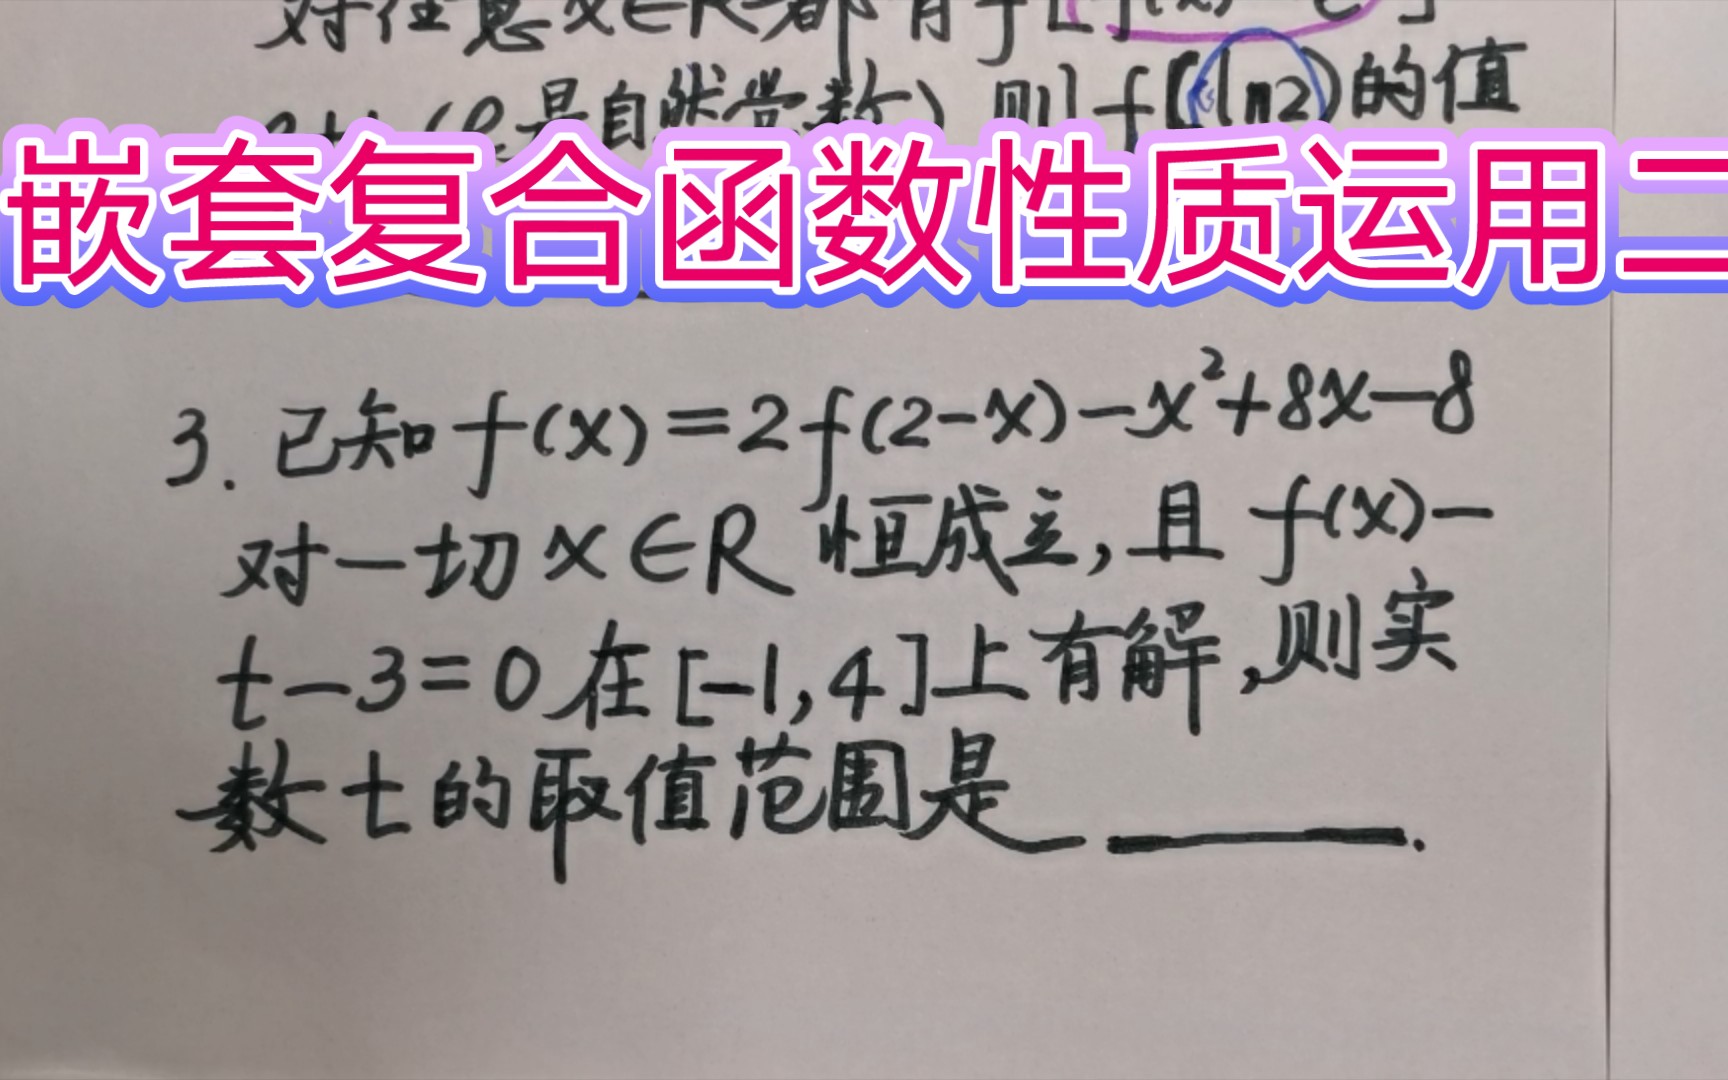 对任意x∈R都有f[f(x)-e
(e是自然常数)则f(ln2)的值
嵌套复合函数性质运用二
3.已知f(x)=2f(2-x)-x²+8x-8
对一切x∈R恒成立,且f(x)-
t-3=0在[-1,4]上有解,则实
数t的取值范围是______.